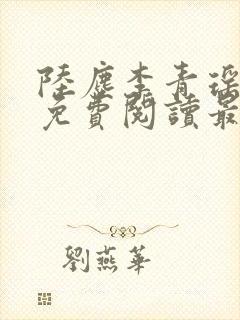 陸塵李青瑤
免費閱讀最
劉燕華